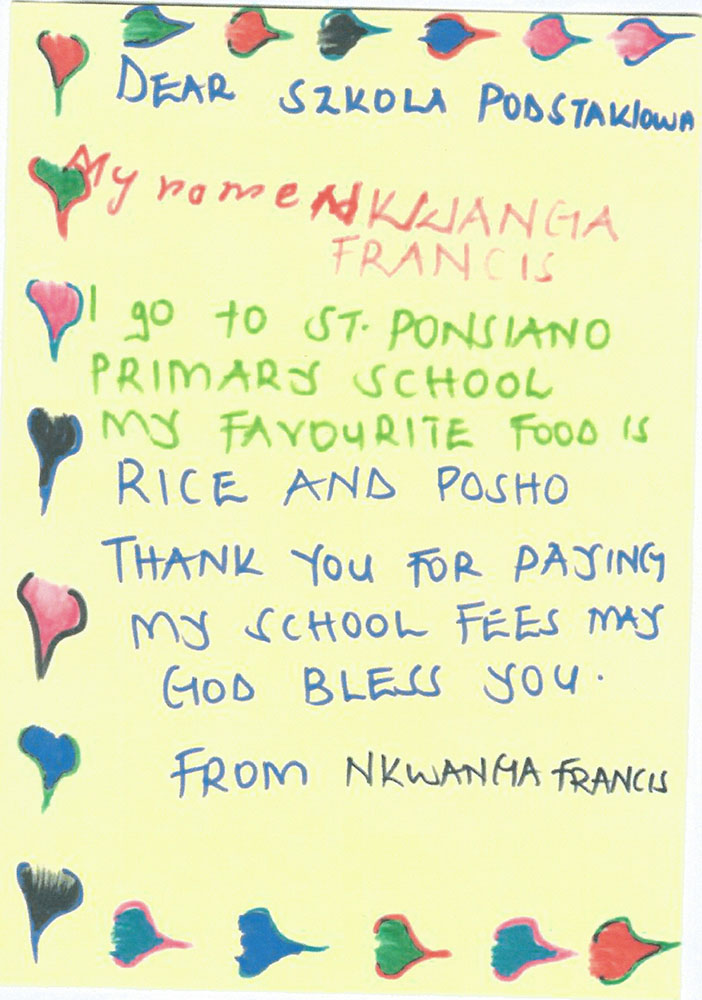 DEAR SZKOLA PODSTAKIOWA
My name NKWANGA
FRANCIS
I go to ST. PONSIANO
PRIMARY SCHOOL
MY FAVOURITE FOOD IS
RICE AND POSHO
THANK YOU FOR PAYING
MY SCHOOL FEES MAY
GOD BLESS YOU.
FROM NKWANGA FRANCIS